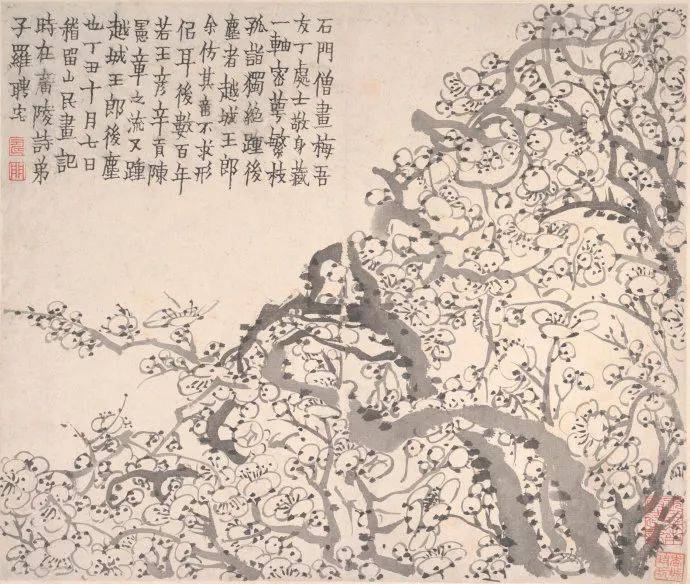 石門僧畫梅吾
友丁處士敬身蔵
一軸密萼繁枝
孤詣獨絶踵後
塵者越城王郎
余仿其意不求形
侣耳後數百年
若王彥辛貢陳
憲章之流又踵
越城王郎後塵
也丁丑十月七日
稽留山民畫記
時在廣陵詩弟
子羅聘宅